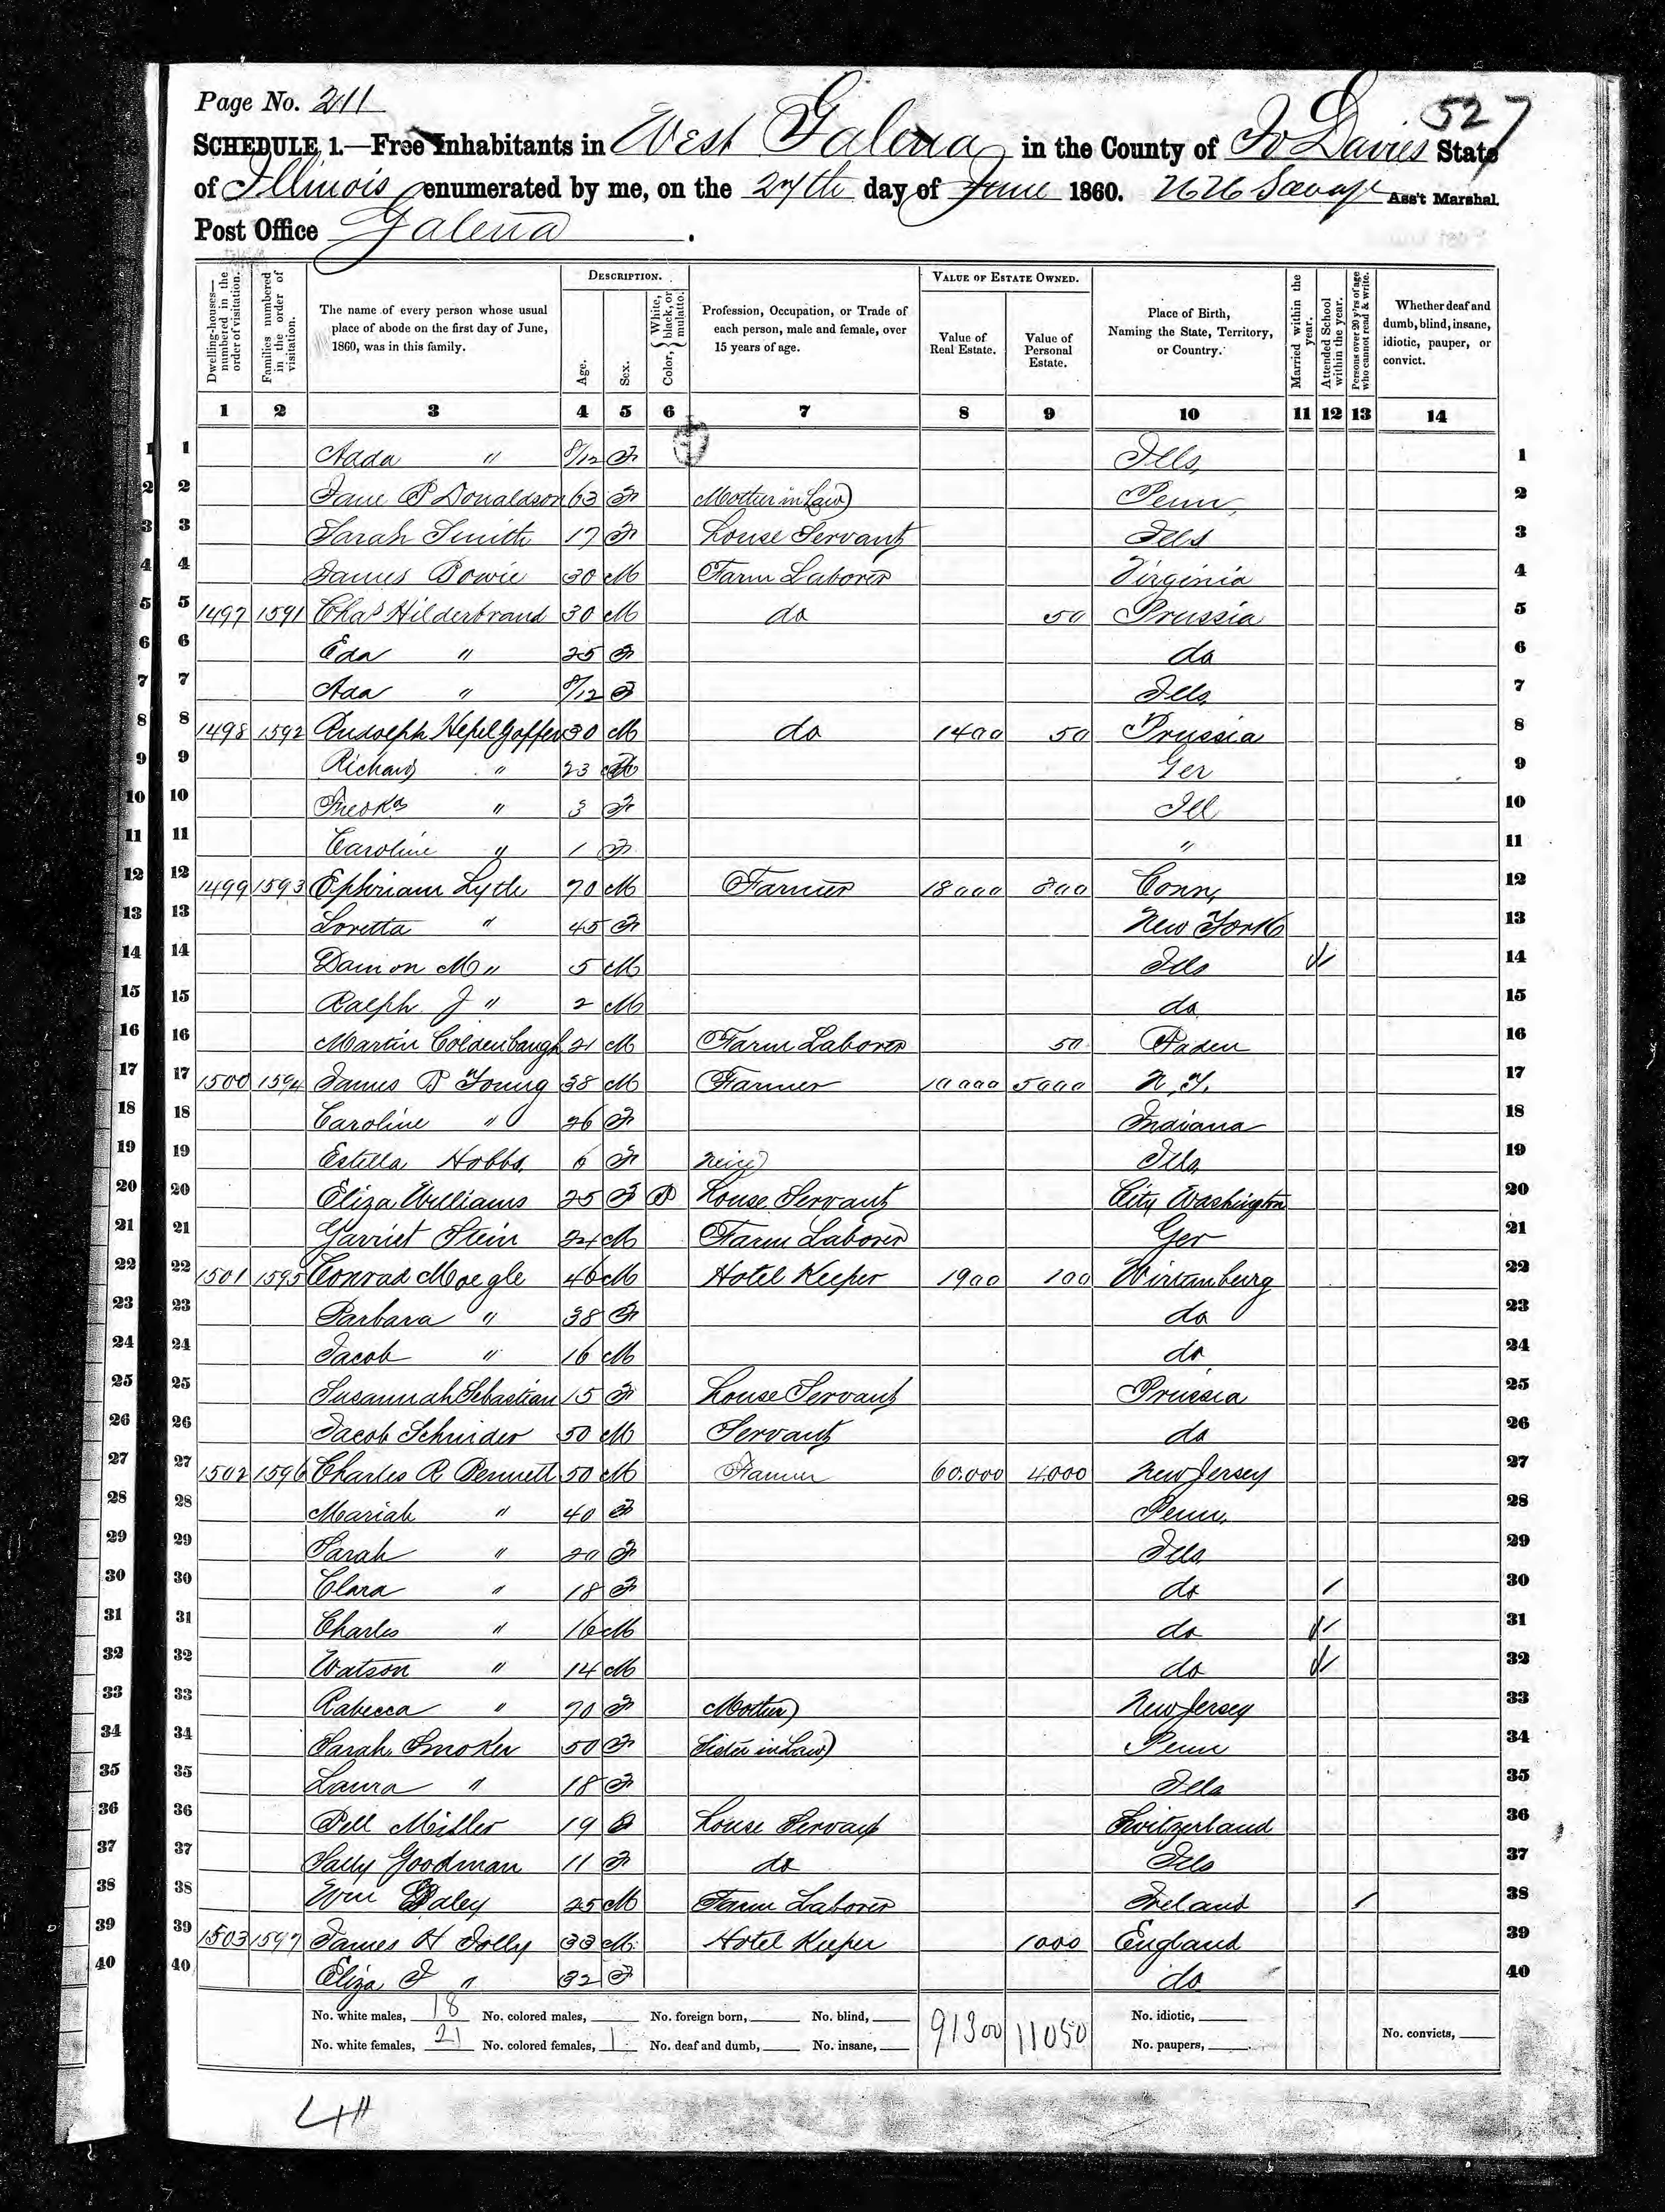 Page No. 211
527
SCHEDULE 1.—Free Inhabitants in West Galena in the County of Jo Davies State
of Illinois enumerated by me, on the 27th day of June 1860. Savage Ass't Marshal.
Post Office Galena.
Dwelling-houses—numbered in the order of visitation. Families numbered in the order of visitation. The name of every person whose usual place of abode on the first day of June, 1860, was in this family. DESCRIPTION. Age. Sex. Color, {White, black, or mulatto. Profession, Occupation, or Trade of each person, male and female, over 15 years of age. VALUE OF ESTATE OWNED. Value of Real Estate. Value of Personal Estate. Place of Birth, Naming the State, Territory, or Country. Married within the year. Attended School within the year. Persons over 20 y'rs of age who cannot read & write. Whether deaf and dumb, blind, insane, idiotic, pauper, or convict.
1 2 3 4 5 6 7 8 9 10 11 12 13 14
1 1 Adda " 8/12 F Ills 1
2 2 Jane P Donaldson 63 F Mother in Law Penn, 2
3 3 Sarah Smith 17 F House Servant Ills 3
4 4 James Bowie 30 M Farm Laborer Virginia 4
5 5 1497 1591 Chas Hilderbrand 30 M do 50 Prussia 5
6 6 Eda " 25 F do 6
7 7 Ada " 8/12 F Ills 7
8 8 1498 1592 Rudolph 30 M do 1400 50 Prussia 8
9 9 Richard " 23 Ger 9
10 10 " 3 F Ill 10
11 11 Caroline " 1 F " 11
12 12 1499 1593 Ephriam Lytle 70 M Farmer 18000 Conn, 12
13 13 Loretta " 45 F New York 13
14 14 Damon M " 5 M Ills 14
15 15 Ralph J " 2 M do 15
16 16 Martin Coldenbaugh 21 M Farm Laborer 50 Baden 16
17 17 1500 1594 James B Young 38 M Farmer 10000 5000 N.Y. 17
18 18 Caroline " 26 F Indiana 18
19 19 Estella Hobbs 6 F Neice Ills 19
20 20 Eliza Williams 25 F B House Servant City Washington 20
21 21 Garriet Stein 24 M Farm Laborer Ger 21
22 22 1501 1595 Conrad Moegle 46 M Hotel Keeper 1900 100 Wirtanburg 22
23 23 Barbara " 38 F do 23
24 24 Jacob " 16 M do 24
25 25 Susannah Sebastian 15 F House Servant Prussia 25
26 26 Jacob Schnider 50 M Servant do 26
27 27 1502 1596 Charles R Bennett 50 M Farmer 60.000 4000 New Jersey 27
28 28 Mariah " 40 F Penn, 28
29 29 Sarah " 20 F Ills 29
30 30 Clara " 18 F do / 30
31 31 Charles " 16 M do 31
32 32 Watson " 14 M do 32
33 33 Rabecca " 70 F Mother New Jersey 33
34 34 Sarah Smoker 50 F Sister in Law Penn 34
35 35 Laura " 18 F Ills 35
36 36 Bell Miller 19 F House Servant Switzerland 36
37 37 Sally Goodman 11 F do Ills 37
38 38 Wm Daley 25 M Farm Laborer Ireland / 38
39 39 1503 1597 James H Jolly 33 M Hotel Keeper 1000 England 39
40 40 Eliza J " 32 F do 40
No. white males, 18 No. colored males, No. foreign born, No. blind, 91300 11050 No. idiotic,
No. white females, 21 No. colored females, 1 No. deaf and dumb, No. insane, No. paupers, No. convicts,